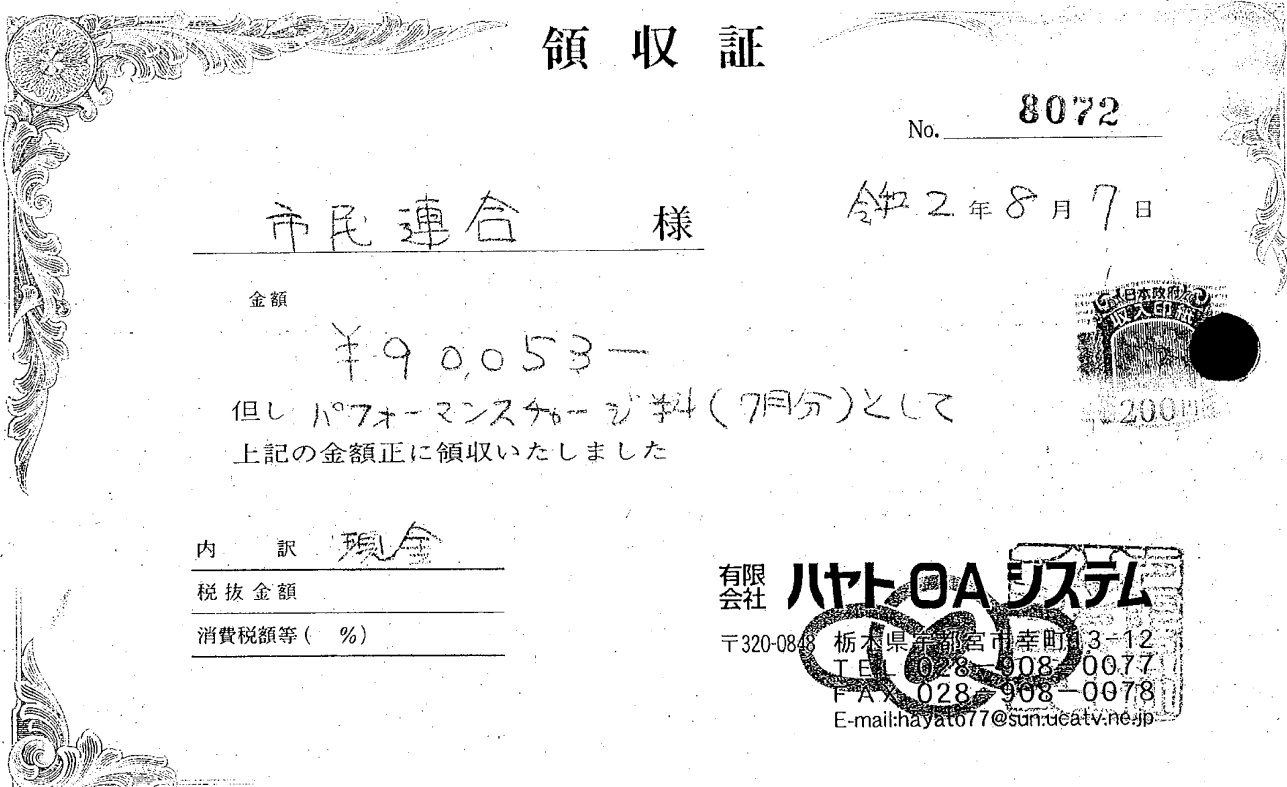 領収証
No. 8072
市民連合 様
令和2年8月7日
金額
¥90,053-
日本政府
収入印紙
200円
但し パフォーマンスチャージ料(7月分)として
上記の金額正に領収いたしました
内訳 現金
税抜金額
消費税額等( %)
有限会社 ハヤトOAシステム
〒320-0848 栃木県宇都宮市幸町13-12
TEL 028-908-0077
FAX 028-908-0078
E-mail:hayato77@sun.ucatv.ne.jp